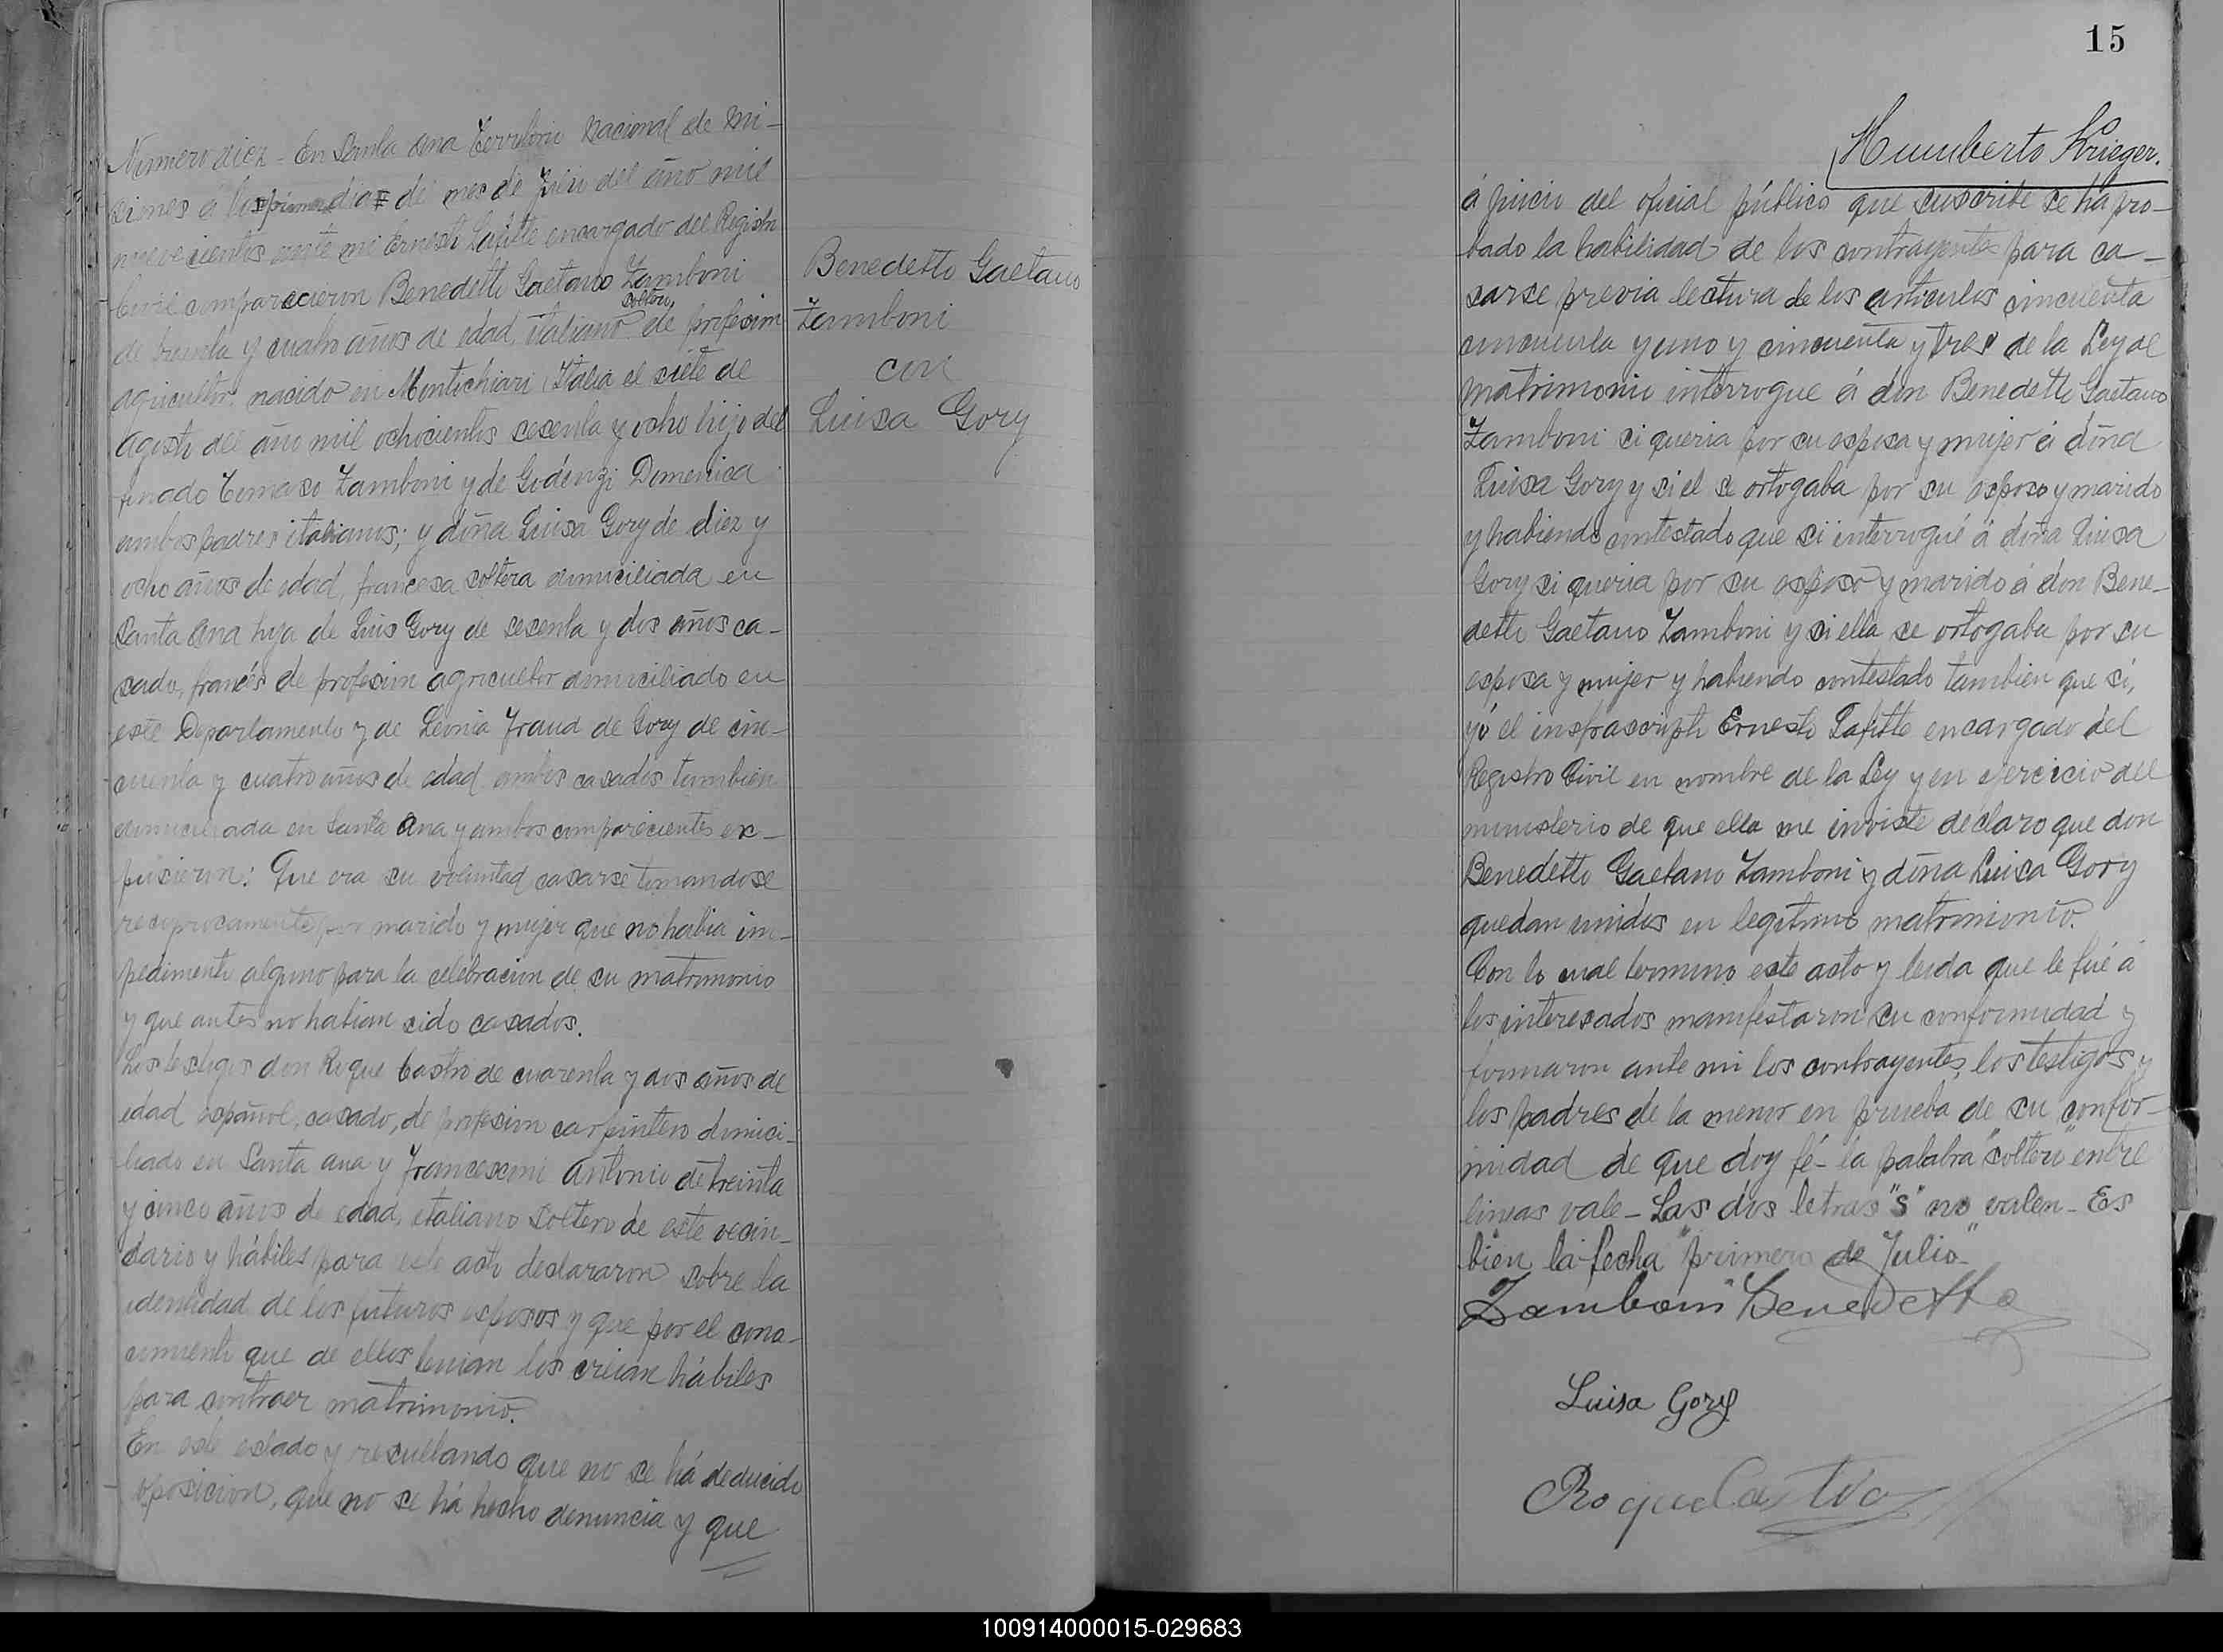 Numero diez - En Santa Ana Territorio Nacional de Mi-
siones á los primero dias de mes de Julio del año mil
novecientos ante mi Ernesto Lafitte encargado del Registro
Civil comparecieron Benedetto Gaetano Zamboni
soltero,
de treinta y cuatro años de edad, italiano de profesion
agricultor, nacido en Montichiari Italia el siete de
Agosto del año mil ochocientos sesenta y ocho hijo del
finado Tomaso Zamboni y de Godenzi Domenica
ambos padres italianos; y doña Luisa Gory de diez y
ocho años de edad, francesa soltera domiciliada en
Santa Ana hija de Luis Gory de sesenta y dos años ca-
sado, francés de profesion agricultor domiciliado en
este Departamento y de Leonia Fraud de Gory de cin-
cuenta y cuatro años de edad ambos casados tambien
domiciliada en Santa Ana y ambos comparecientes ex-
pusieron: Que era su voluntad casarse tomandose
reciprocamente por marido y mujer que no habia im-
pedimento alguno para la celebracion de su matrimonio
y que antes no habian sido casados.
Los testigos don Roque Castro de cuarenta y dos años de
edad español, casado, de profesion carpintero domici-
liado en Santa Ana y Francesconi Antonio de treinta
y cinco años de edad, italiano soltero de este vecin-
dario y hábiles para este acto declararon sobre la
identidad de los futuros esposos y que por el cono-
cimiento que de ellos tenian los creian hábiles
para contraer matrimonio.
En este estado y resultando que no se há deducido
oposicion, que no se há hecho denuncia y que
Benedetto Gaetano
Zamboni
con
Luisa Gory
15
Humberto Krieger.
á juicio del oficial público que suscribe se há pro-
bado la habilidad de los contrayentes para ca-
sarse previa lectura de los articulos cincuenta
cincuenta y uno y cincuenta y tres de la Ley de
Matrimonio interrogue á don Benedetto Gaetano
Zamboni si queria por su esposa y mujer á doña
Luisa Gory y si el se ortogaba por su esposo y marido
y habiendo contestado que si interrogué á doña Luisa
Gory si queria por su esposo y marido á don Bene-
detto Gaetano Zamboni y si ella se ortogaba por su
esposa y mujer y habiendo contestado tambien que si,
yó el insfrascripto Ernesto Lafitte encargado del
Registro Civil en nombre de la Ley y en ejercicio del
ministerio de que ella me inviste declaro que don
Benedetto Gaetano Zamboni y doña Luisa Gory
quedan unidos en legitimo matrimonio.
Con lo cual termino este acto y leida que le fué á
los interesados manifestaron su conformidad y
firmaron ante mi los contrayentes, los testigos y
los padres de la menor en prueba de su confor-
midad de que doy fé - la palabra "soltero" entre
lineas vale - Las dos letras "s" no valen - Es
bien la fecha "primero de Julio"
Zamboni Benedetto
Luisa Gory
Roque Castro
100914000015-029683